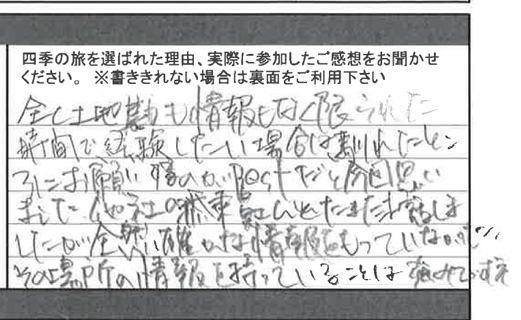 四季の旅を選ばれた理由、実際に参加したご感想をお聞かせ
ください。 ※書ききれない場合は裏面をご利用下さい
全く土地勘も情報もなく限られた
時間で経験したい場合は馴れたとこ
ろにお願いするのがBestだと今回思い
ました。他社の乗車員さんとたまたま話しま
したが全然確かな情報をもっていなかった。
その場所の情報を持っていることは強みですね